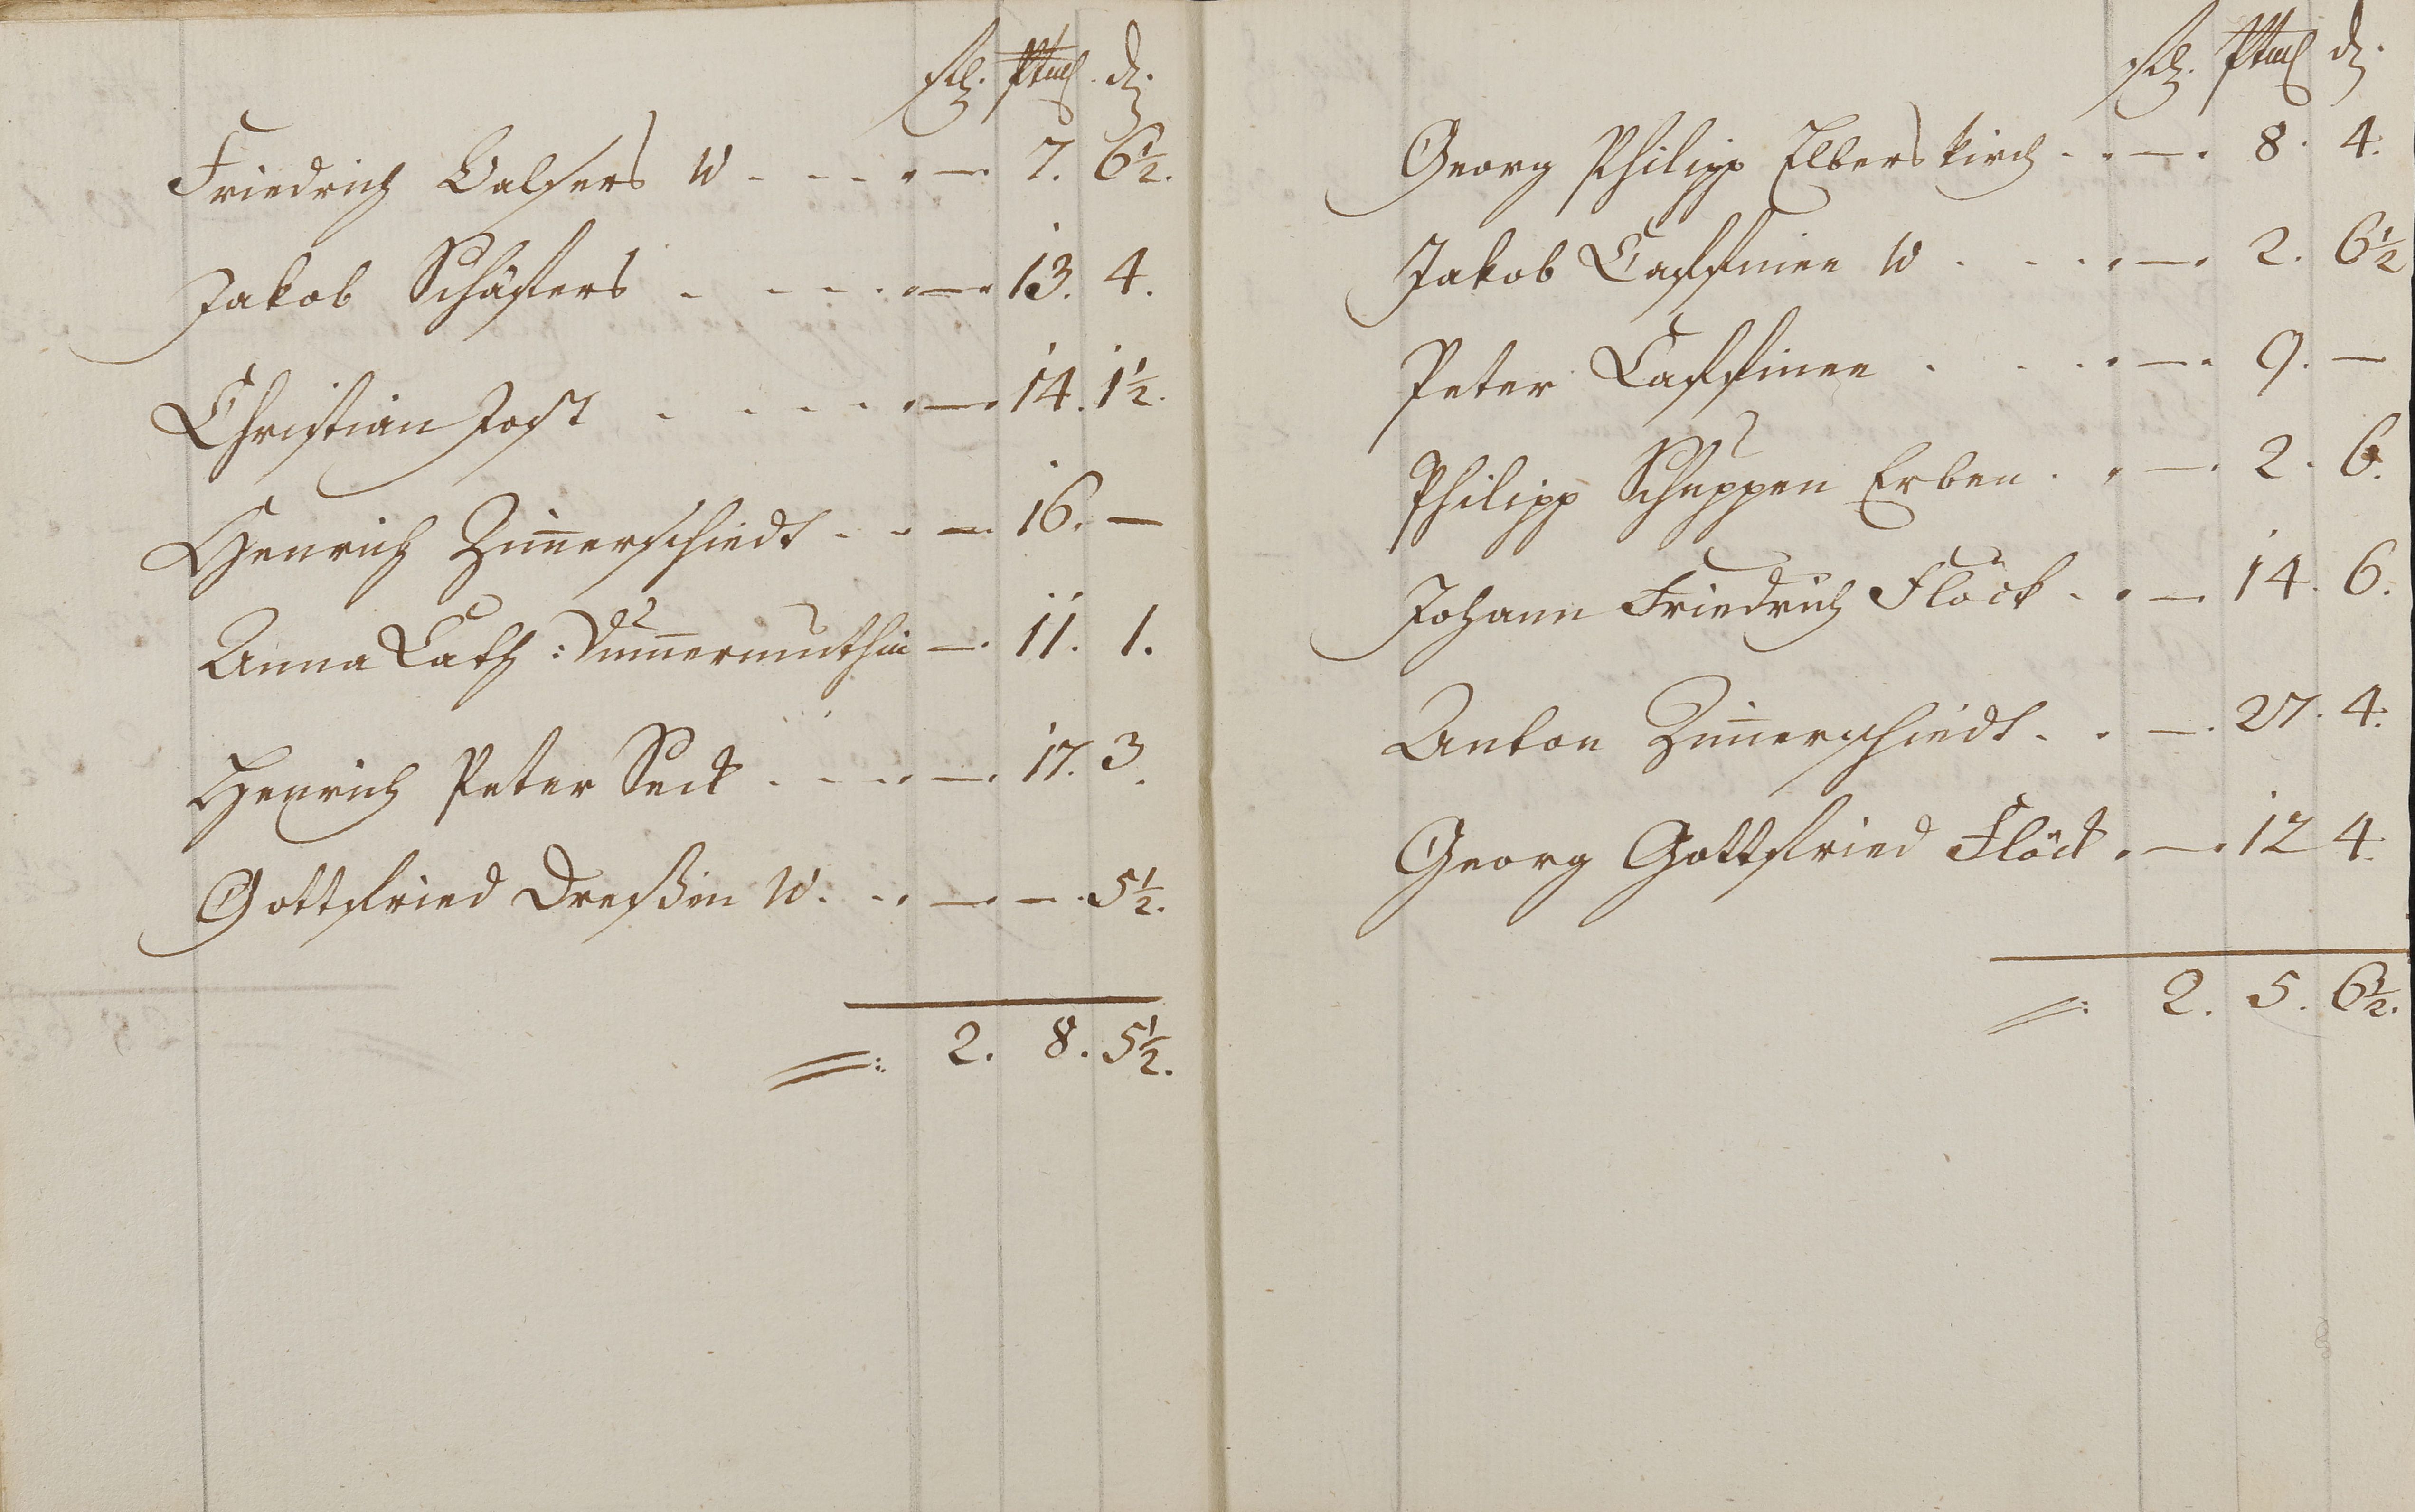 fl. Ptmß. d.
Friedrich Balsers W - - - - — 7. 6½.
Jakob Schäfers - - - - — 13. 4.
Christian Jost - - - - — 14. 1½.
Henrich Zim̅erschiedt - - — 16. —
Anna Cath: Dum̅ermuthin — 11. 1.
Henrich Peter Seck - - - — 17. 3.
Gottfried Dreßen W. - - — — 5½.
2. 8. 5½.
fl. Ptmß d.
Georg Philipp Elberskirch - - — 8. 4.
Jakob Cassinee W - - - — 2. 6½
Peter Cassinee - - - — 9. —
Philipp Schuppen Erben - - — 2. 6.
Johann Friedrich Flöck - - — 14. 6.
Anton Zim̅erschiedt - - — 27. 4.
Georg Gottfried Flöck - — 12 4.
2. 5. 6½.